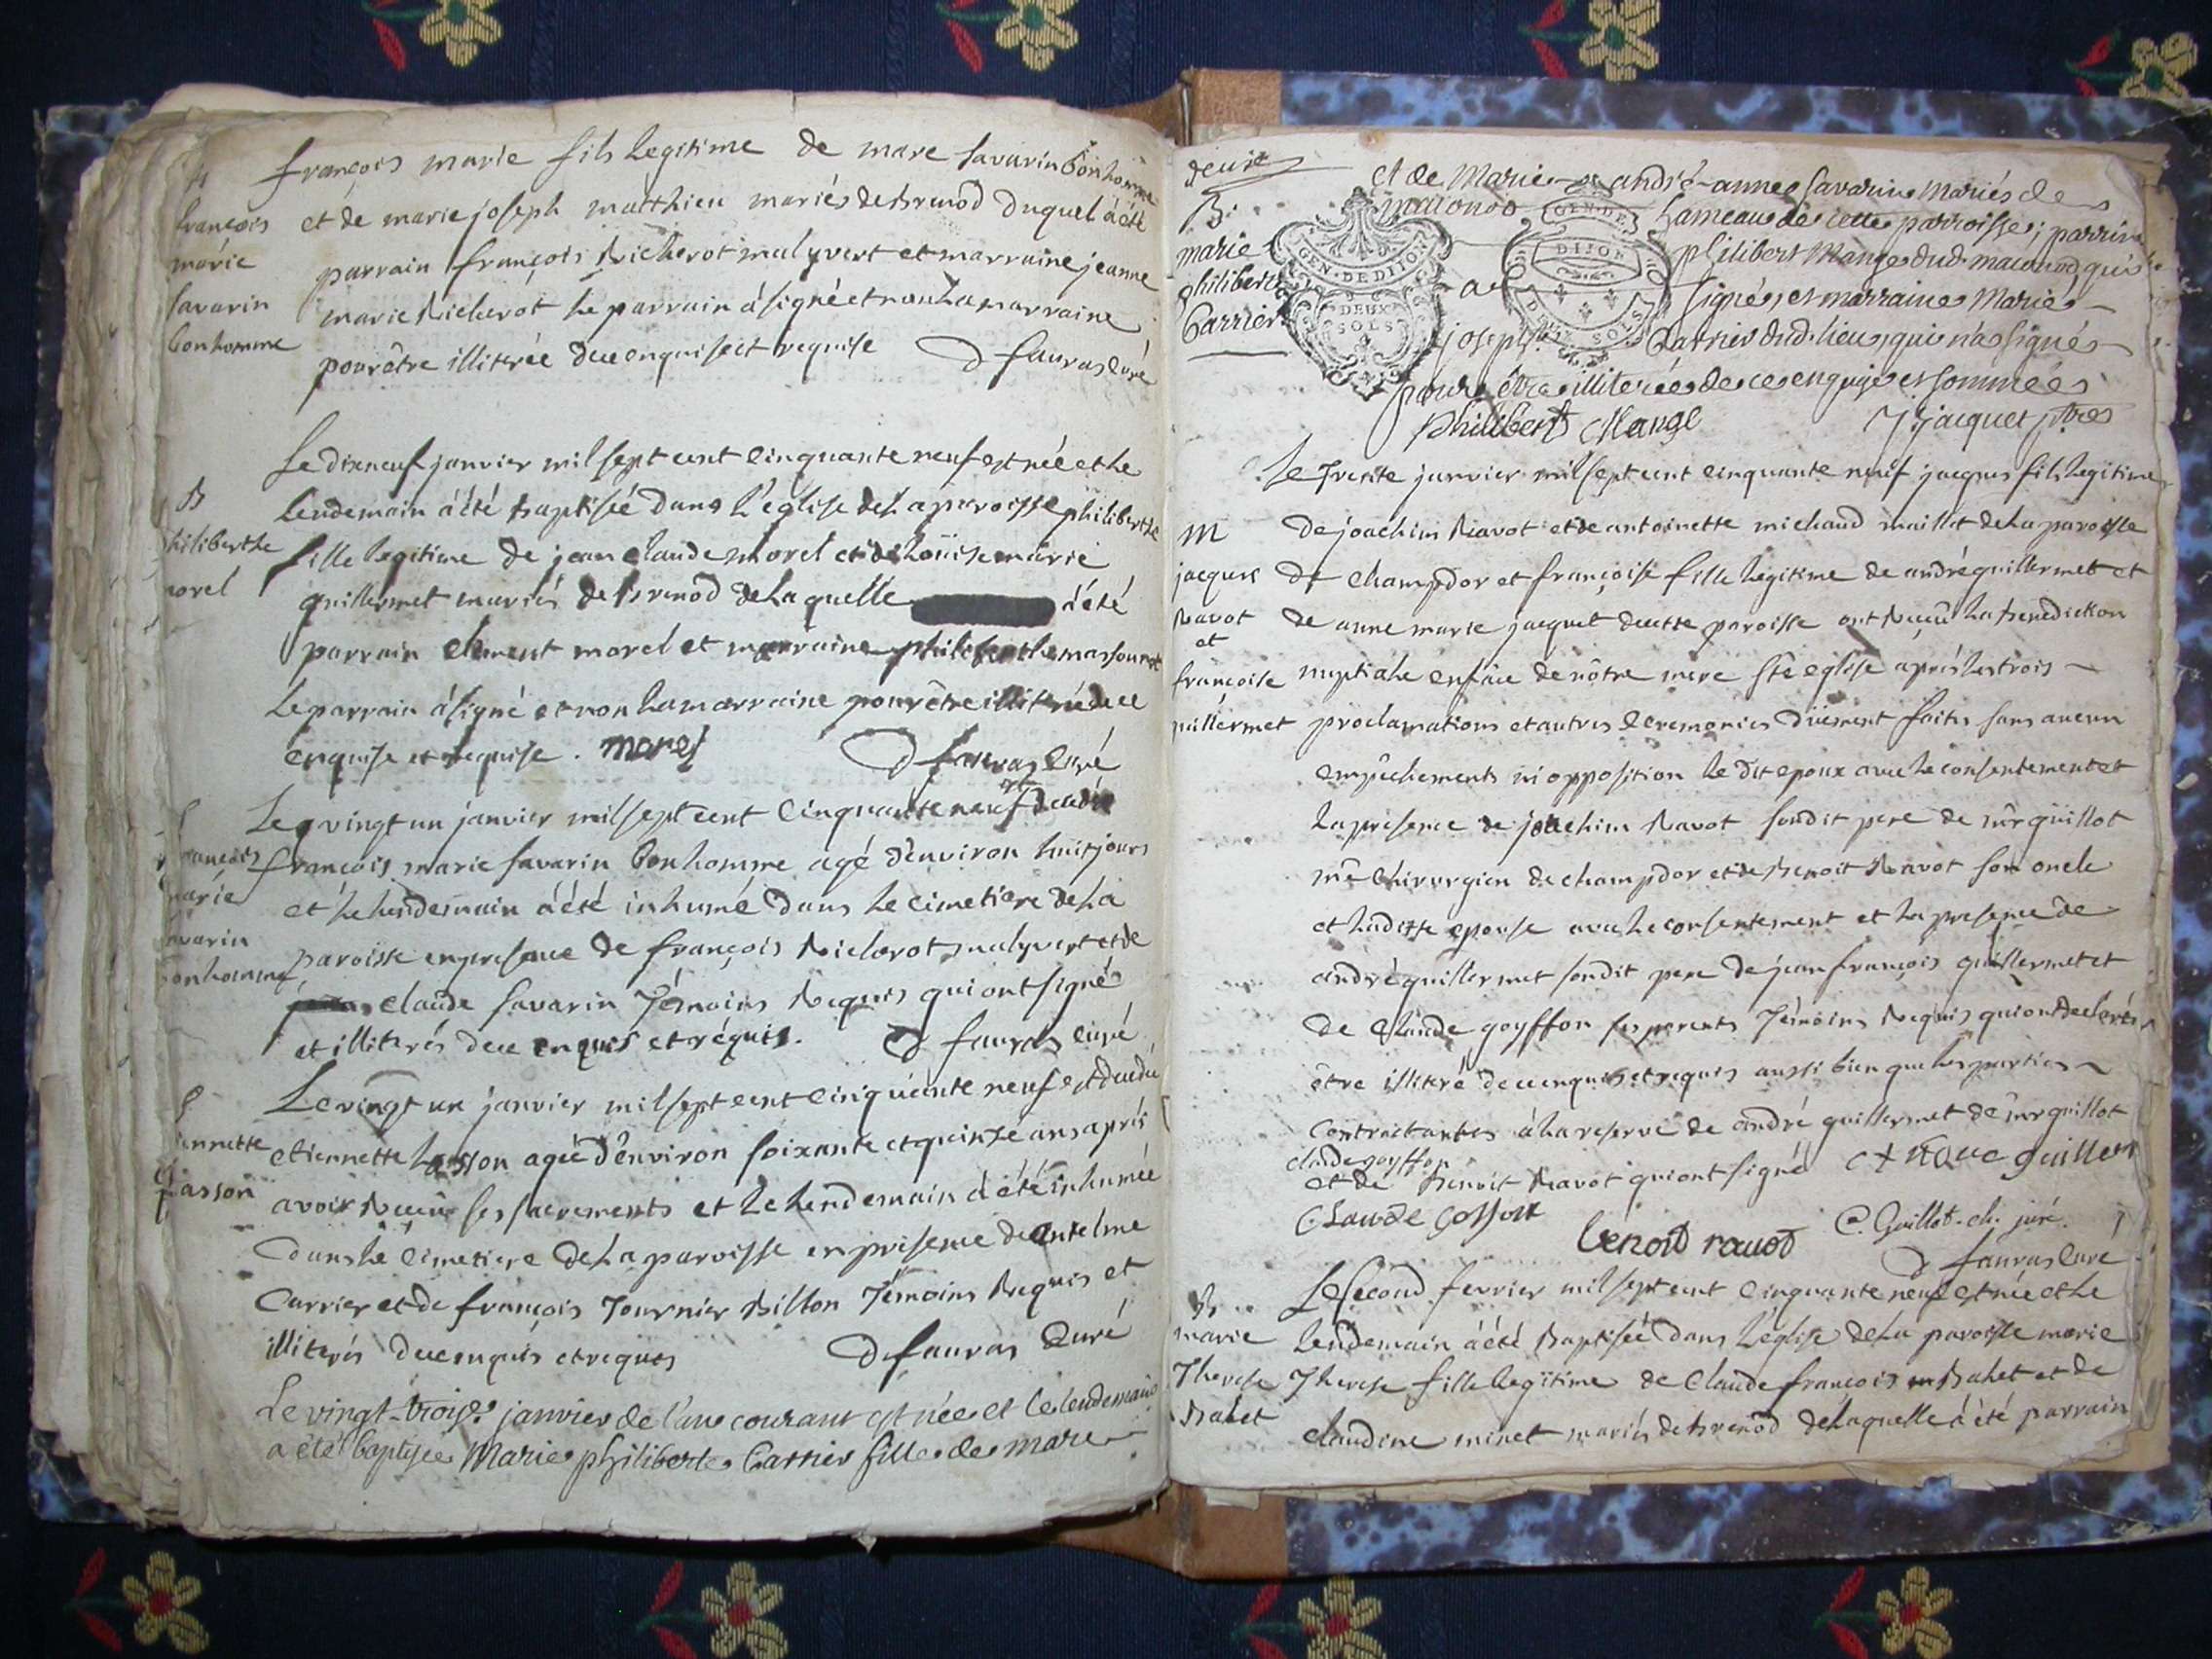 B
françois
marie
savarin
bonhomme
françois marie fils legitime de marc savarin bonhomme
et de marie joseph matthieu mariés de brenod duquel à été
parrain françois Richerot malyvert et marraine jeanne
marie Richerot le parrain à signé et non la marraine
pour être illiterée de ce enquise et requise D fauras Curé
B
philiberthe
morel
Le dixneuf janvier mil sept cent cinquante neuf est née et le
lendemain à été baptisée dans l'église de la paroisse philiberthe
fille legitime de jean claude morel et de loüise marie
guillermet mariés de brenod de laquelle à été
parrain clement morel et marraine philiberthe massonet
le parrain à signé et non la marraine pour être illiterée de ce
enquise et requise . morel D fauras Curé
françois
marie
savarin
bonhomme
Le vingt un janvier mil sept cent cinquante neuf est decedé
françois marie savarin bonhomme agé d'environ huit jours
et le lendemain à été inhumé dans le cimetiere de la
paroisse en presence de françois Richerot malyvert et de
claude savarin Témoins Requis qui ont signé
et illiterés de ce enquis et réquis. D fauras curé
ennette
asson
Le vingt un janvier mil sept cent cinquante neuf est decedée
etiennette Lasson agée d'environ soixante et quinze ans aprés
avoir Reçeu ses sacrements et le lendemain à été inhumée
dans le cimetiere de la paroisse en presence de antelme
Carrier et de françois Tournier Billon Témoins Requis et
illiterés de ce enquis et requis D fauras Curé
Le vingt-trois janvier de l'an courant est née et le lendemain
a été baptisée Marie philiberte Carrier fille de Marc
deux
B.
marie
philiberte
Carrier
et de Marie andré-anne Savarin mariés de
maconod hameau de cette parroisse; parrain
philibert Mange dud. maconod, qui
a signé, et marraine Marie
joseph Carrier dud. lieu, qui n'a signé
pour être illiterée de ce enquise et sommée
GEN. DE DIJON
DEUX
SOLS
GEN. DE
DIJON
DEUX SOLS
philibert Mange J. jacquet ptre
M
jacques
Ravot
et
françoise
guillermet
Le Trente janvier mil sept cent cinquante neuf jacques fils legitime
de joachim Ravot et de antoinette michaud maillet de la paroisse
de champdor et françoise fille legitime de andré guillermet et
de anne marie jacquet de cette paroisse ont Reçeu la benediction
nuptiale en face de nôtre mere ste eglise aprés les trois
proclamations et autres ceremonies düement faites sans aucun
empêchements ni opposition le dit epoux avec le consentement et
la presence de joachim Ravot sondit pere de sieur guillot
me chirurgien de champdor et de benoit Ravot son oncle
et laditte epouse avec le consentement et la presence de
andré guillermet sondit pere de jean françois guillermet et
de claude goyffon ses parents Témoins Requis qui ont declarés
être illiteré de ce enquis et requis aussi bien que les parties
contractantes à la reserve de andré guillermet de sieur guillot
claude goyffon
et de Benoit Ravot qui ont signé
benoid rauod C. Guillot ch. juré.
D fauras Curé
B
marie
Therese
Balet
Le Second fevrier mil sept cent cinquante neuf est née et le
lendemain à été Baptisée dans l'église de la paroisse marie
Therese fille legitime de Claude françois Balet et de
claudine minet mariés de brenod de laquelle à été parrain